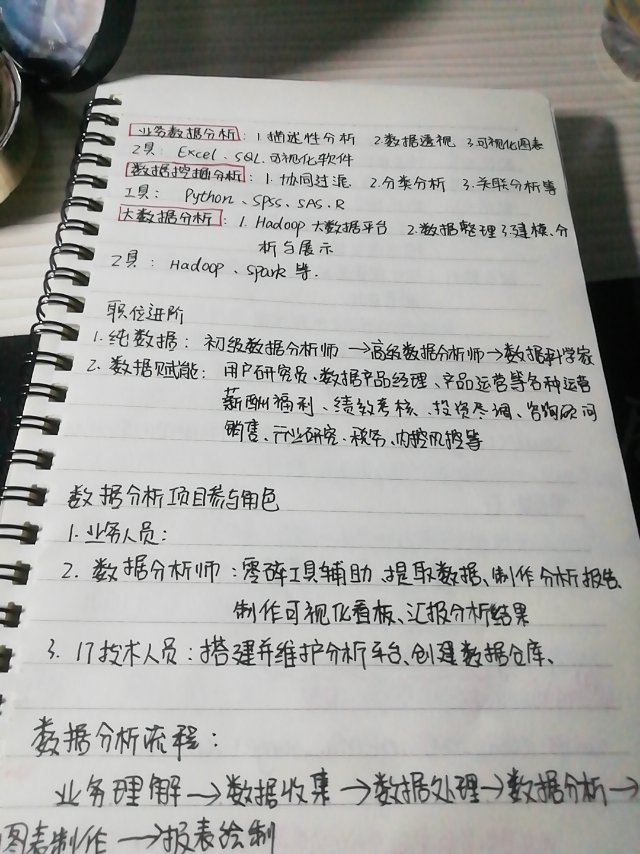 业务数据分析：1.描述性分析 2数据透视 3.可视化图表
工具： Excel、SQL.可视化软件
数据挖掘分析：1.协同过滤 2.分类分析 3.关联分析等
工具： Python、SPSS、SAS、R
大数据分析：1. Hadoop 大数据平台 2.数据整理 3.建模、分
析与展示
工具：Hadoop、Spark 等.
职位进阶
1.纯数据：初级数据分析师→高级数据分析师→数据科学家
2.数据赋能：用户研究员、数据产品经理、产品运营等各种运营
薪酬福利、绩效考核、投资尽调、咨询顾问
销售、行业研究、税务、内控风控等
数据分析项目参与角色
1.业务人员：
2.数据分析师：工具辅助、提取数据、制作分析报告
制作可视化看板、汇报分析结果
3. IT技术人员：搭建并维护分析平台、创建数据仓库、
数据分析流程：
业务理解→数据收集→数据处理→数据分析→
图表制作→报表绘制